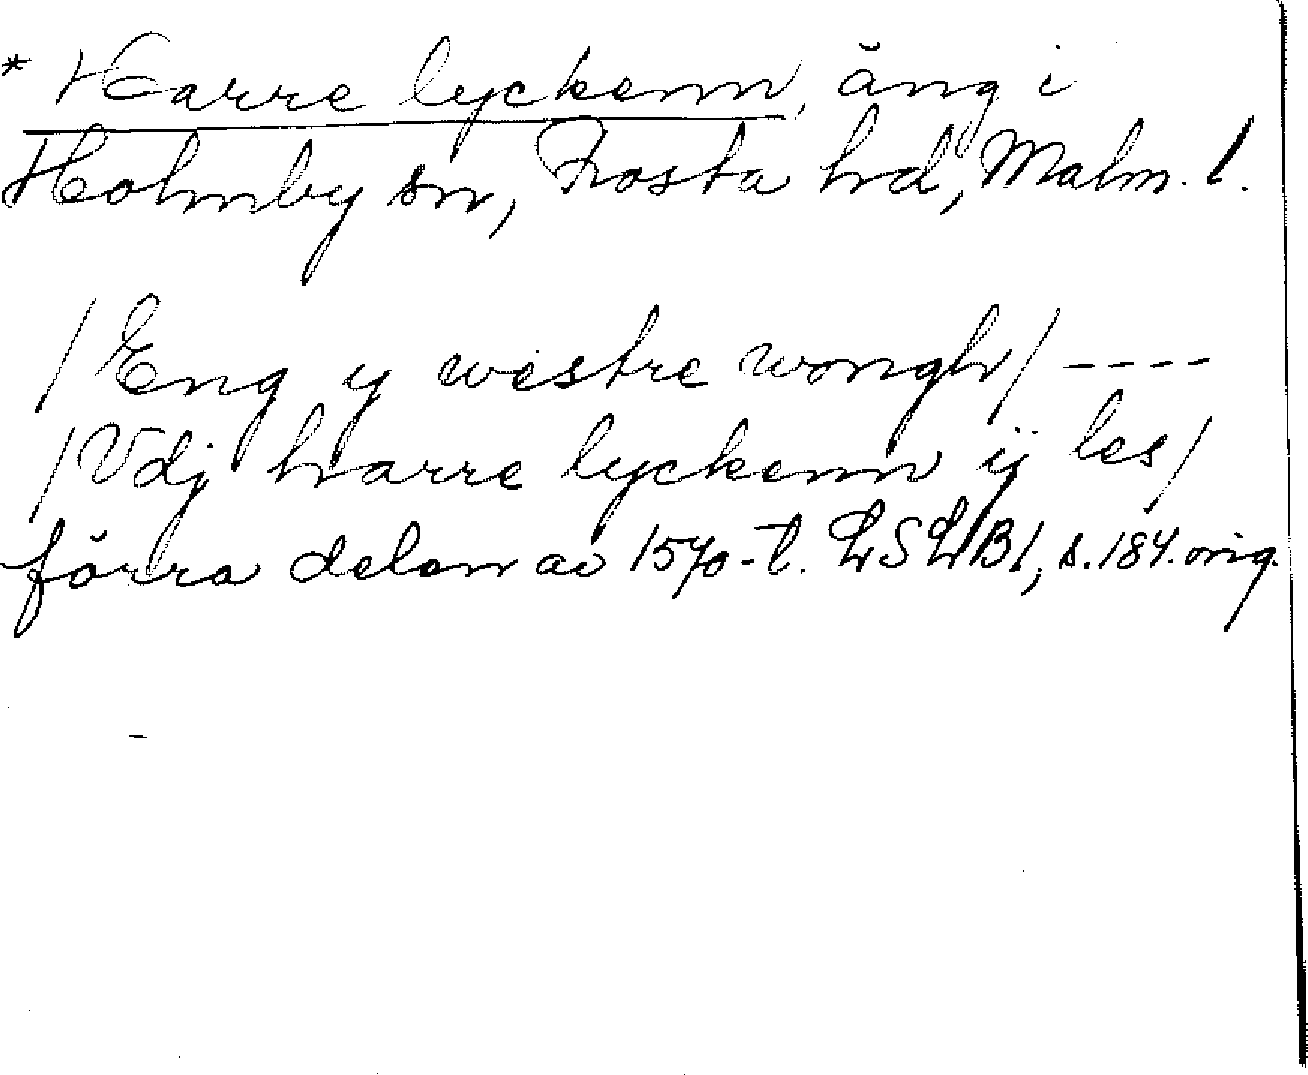 * Harre lyckenn, äng i
Holmby sn, Frosta hd, Malm. l.
/Eng y westre wongh/ ----
/Vdj harre lyckenn ij les/
förra delen av 1570-t. LSLB1, s.184. orig.